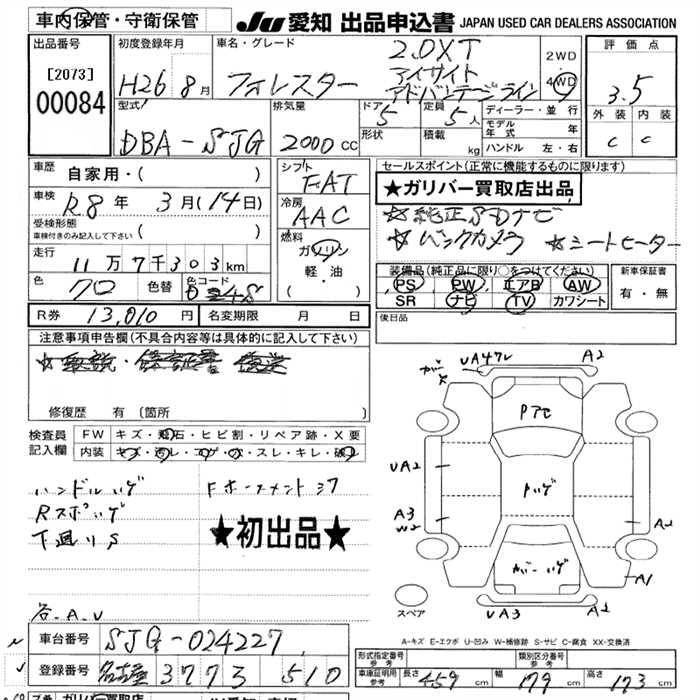 車内保管・守衛保管
JU 愛知 出品申込書 JAPAN USED CAR DEALERS ASSOCIATION
出品番号
[2073]
00084
初度登録年月
H26 8月
車名・グレード
フォレスター
2.0XT
アイサイト
アドバンテージライン
2WD
4WD
評価点
3.5
外装 内装
C C
型式
DBA-SJG
排気量
2000 CC
ドア
5
形状
定員
5人
積載 kg
ディーラー・並行
モデル年式 年
ハンドル 左・右
車歴
自家用・( )
車検
R.8年 3月(14日)
受検形態
車検付きのみ記入して下さい ( )
走行
11万7千303km
色
クロ
色替
色コード
D
シフト
FAT
冷房
AAC
燃料
ガソリン
軽・油
( )
R券 13,010円
名変期限 月 日
セールスポイント(正常に機能するものに限ります)
★ガリバー買取店出品
☆純正SDナビ
☆バックカメラ ☆シートヒーター
装備品(純正品に限り○をつけてください)
PS PW エアB AW
SR ナビ TV カワシート
新車保証書
有・無
後日品
注意事項申告欄(不具合内容等は具体的に記入して下さい)
修復歴 有 (箇所 )
検査員記入欄
FW キズ・飛石・ヒビ割・リペア跡・X要
内装 キズ・汚レ・コゲ・穴・スレ・キレ・破レ
ハンドルハゲ
Rスポハゲ
下廻りS
各.A.U
★初出品★
UA4ワレ
A2
Pアセ
UA2
Pハゲ
A3
W2
A2
A1
UA3
A2
スペア
A-キズ E-エクボ U-凹み W-補修跡 S-サビ C-腐食 XX-交換済
車台番号 SJG-024227
登録番号 名古屋 3773 510
形式指定番号
参考
類別区分番号
参考
車庫証明用
参考
長さ 459cm 幅 179cm 高さ 173cm
ガリバー買取店